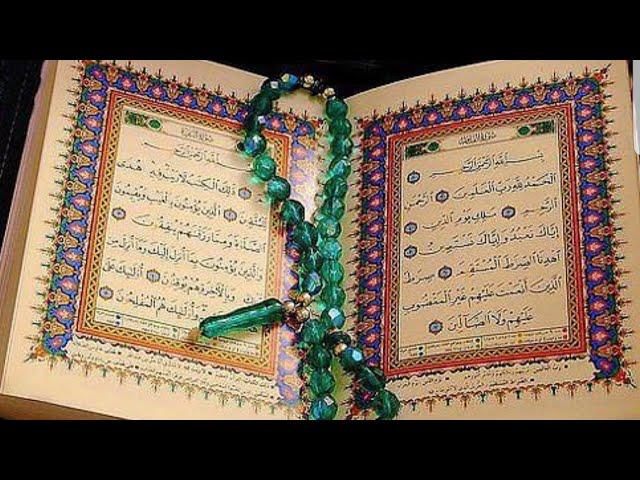 سورة الفاتحة
بسم الله الرحمن الرحيم
الحمد لله رب العلمين الرحمن
الرحيم ملك يوم الدين
إياك نعبد وإياك نستعين
اهدنا الصرط المستقيم صرط
الذين أنعمت عليهم غير المغضوب
عليهم ولا الضالين
سورة البقرة
بسم الله الرحمن الرحيم
ذلك الكتب لا ريب فيه هدى
للمتقين الذين يؤمنون بالغيب ويقيمون
الصلوة ومما رزقنهم ينفقون
والذين يؤمنون بما أنزل إليك وما أنزل
وبالآخرة هم يوقنون أولئك على
وأولئك هم المفلحون